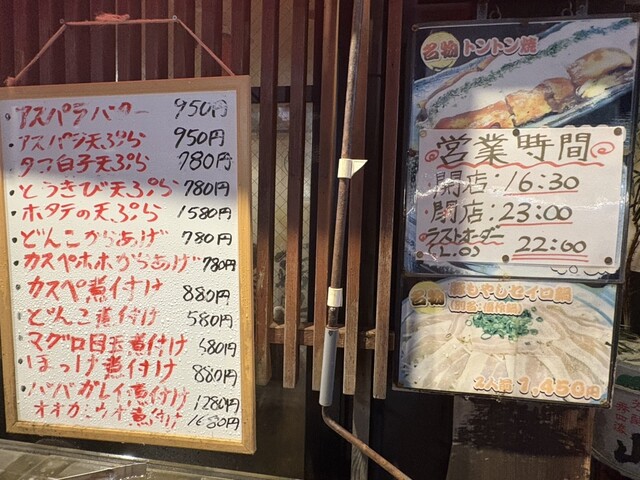 アスパラバター 950円
アスパラ天ぷら 950円
タコ白子天ぷら 780円
とうきび天ぷら 780円
ホタテの天ぷら 1580円
どんこからあげ 780円
カスペホホからあげ 780円
カスペ煮付け 880円
どんこ煮付け 580円
マグロ目玉煮付け 580円
ほっけ煮付け 880円
ババガレイ煮付け 1280円
オオカミウオ煮付け 1680円
名物 トントン焼
営業時間
開店:16:30
閉店:23:00
ラストオーダー
L.O.S 22:00
名物 豚もやしセイロ鍋
2人前 1,450円